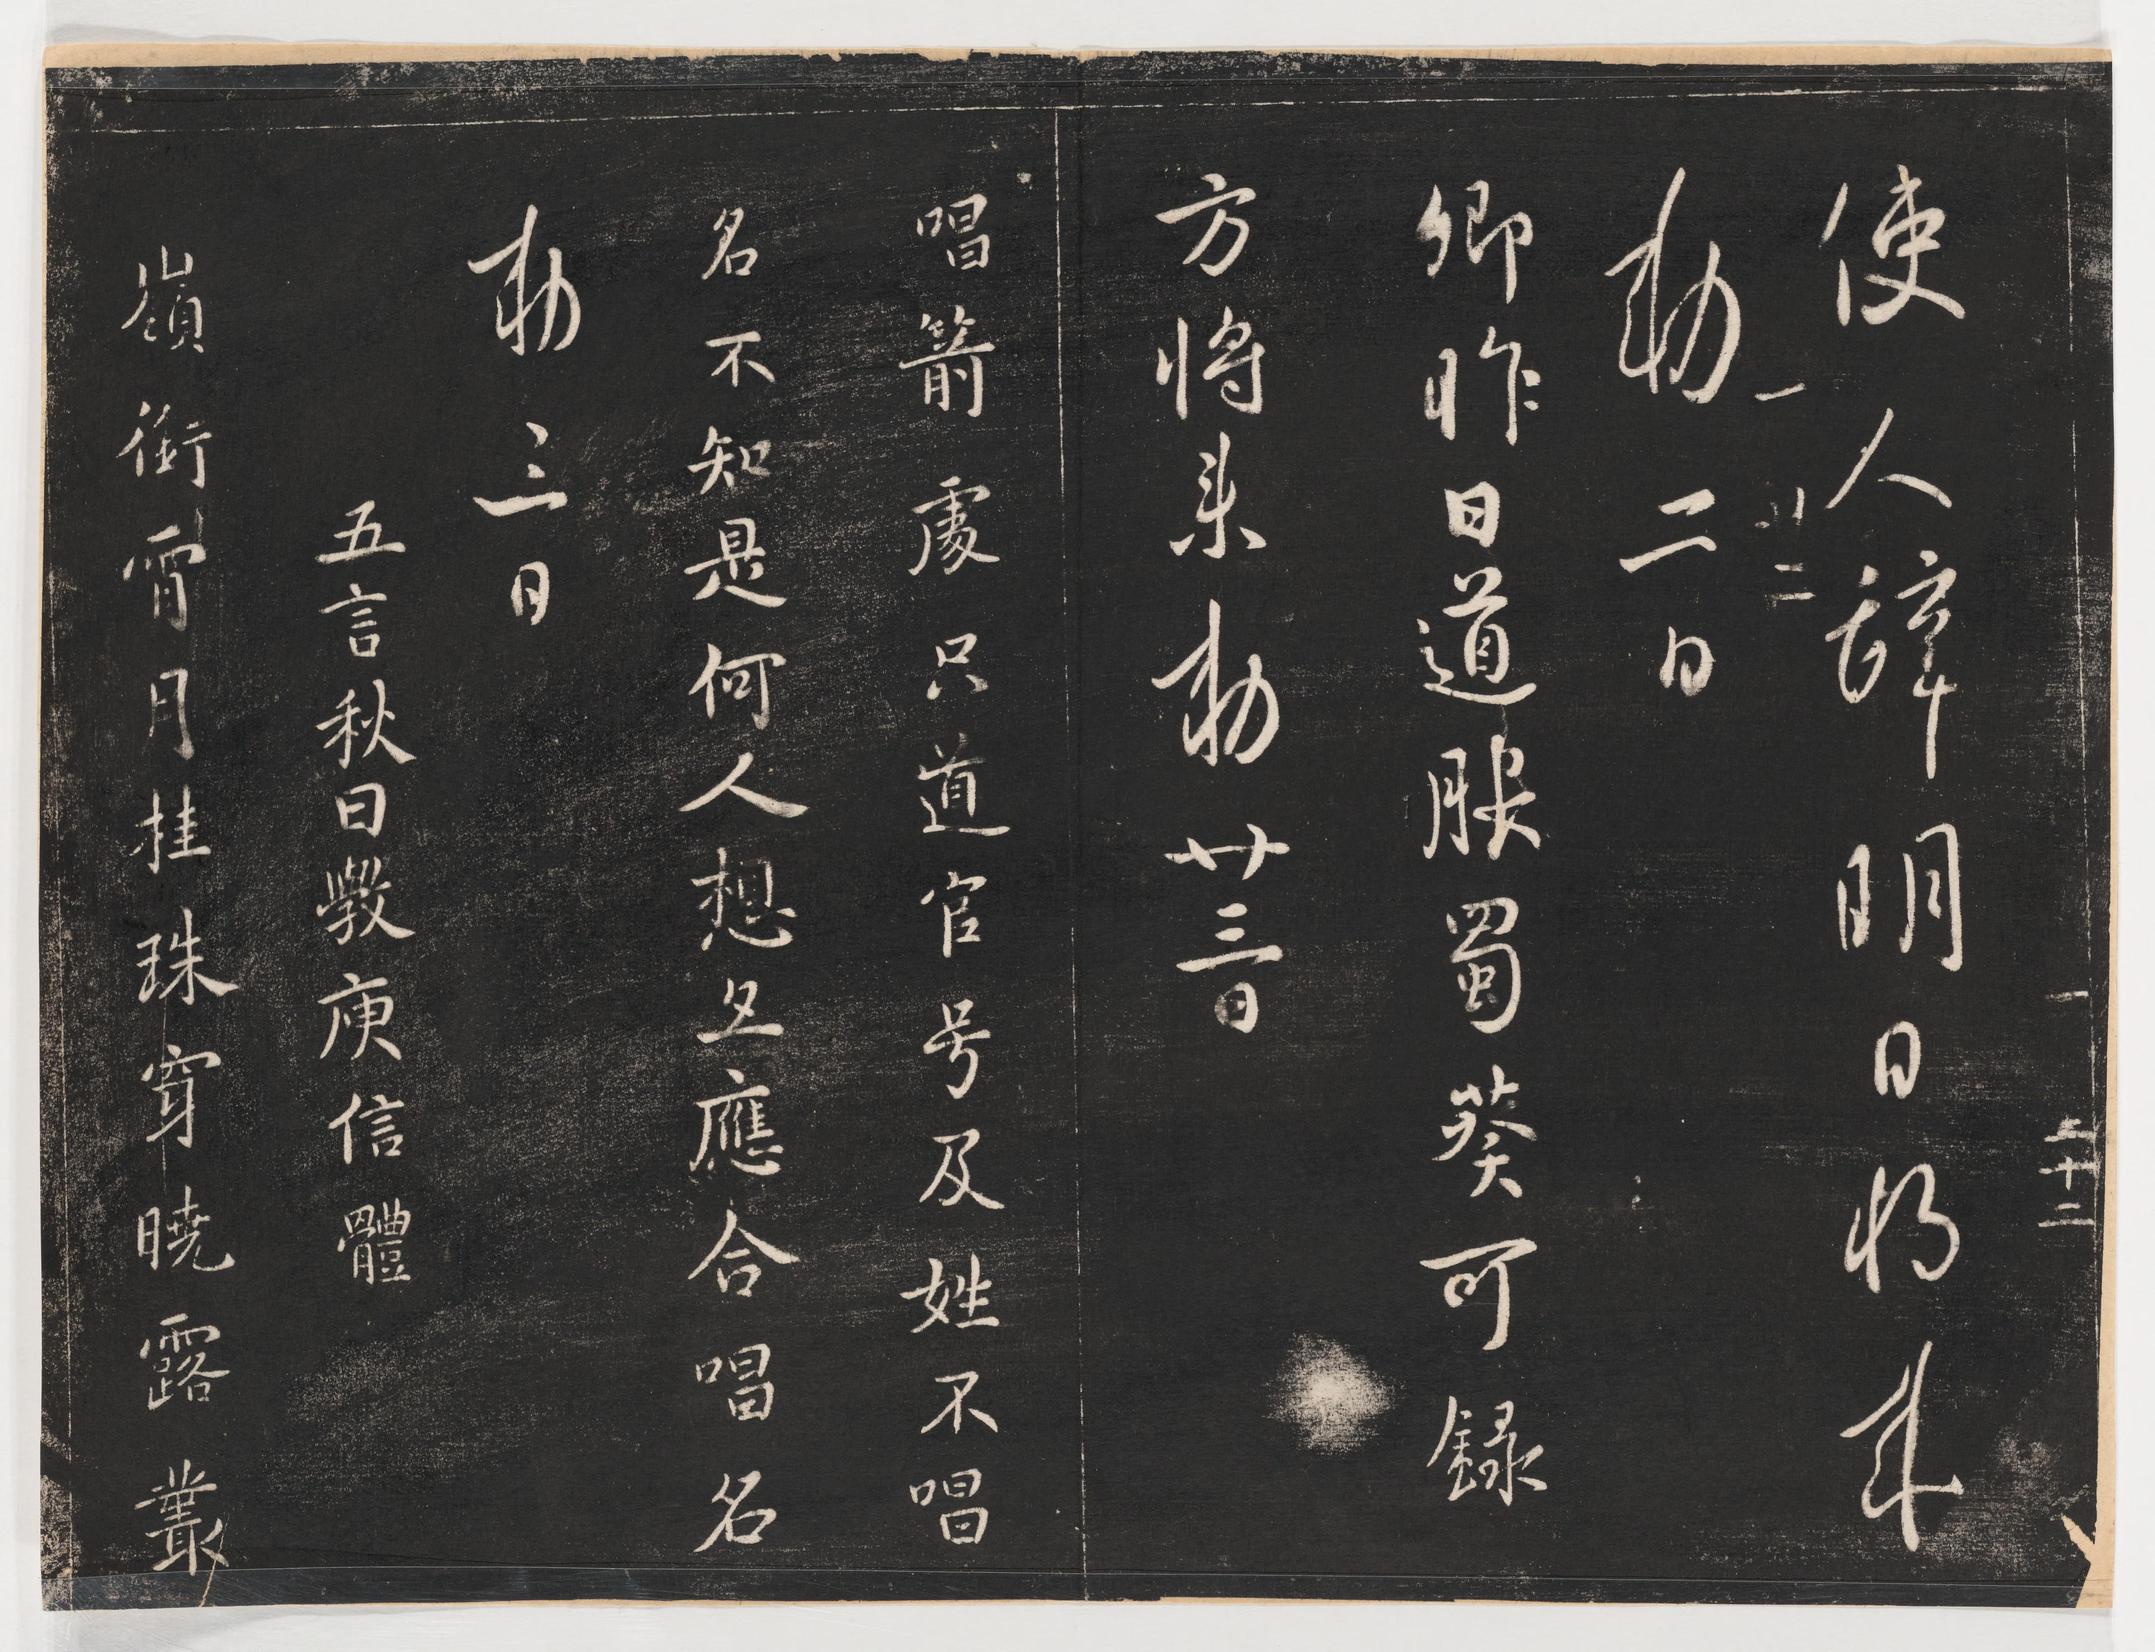 使人辞明日将来
勅二日
一
廿二
卿昨日道服蜀葵可録
方將来勅廿三日
唱箭處只道官号及姓不唱
名不知是何人想旦應合唱名
勅三日
五言秋日斆庾信體
嶺銜霄月桂珠穿曉露叢